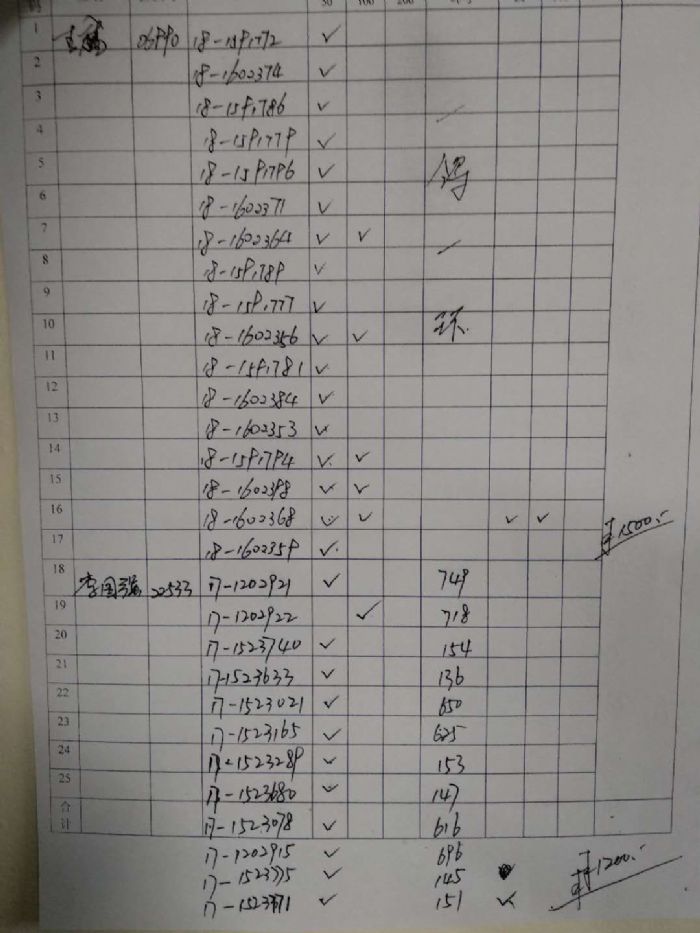 50 100 200
1 06990 18-1591772 ✓
2 18-1602374 ✓
3 18-1591786 ✓
4 18-1591779 ✓
5 18-1591796 ✓ 鸽
6 18-1602371 ✓
7 18-1602364 ✓ ✓
8 18-1591789 ✓
9 18-1591777 ✓
10 18-1602356 ✓ ✓ 环
11 18-1591781 ✓
12 18-1602384 ✓
13 18-1602353 ✓
14 18-1591794 ✓ ✓
15 18-1602398 ✓ ✓
16 18-1602368 ✓ ✓ ✓ ✓ ¥1500.-
17 18-1602359 ✓
18 李国强 20533 17-1202921 ✓ 749
19 17-1202922 ✓ 718
20 17-1523740 ✓ 154
21 17-1523633 ✓ 136
22 17-1523021 ✓ 650
23 17-1523165 ✓ 625
24 17-1523289 ✓ 153
25 17-1523680 ✓ 147
合计 17-1523078 ✓ 616
17-1202915 ✓ 696
17-1523775 ✓ 145 ¥1200.-
17-1523771 ✓ 151 ✓